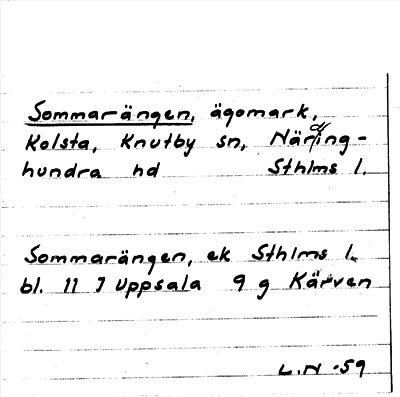 Sommarängen, ägomark,
Kolsta, Knutby sn, Närding-
hundra hd Sthlms l.
Sommarängen, ek Sthlms l.
bl. 11 I Uppsala 9 g Kärven
L.N -59